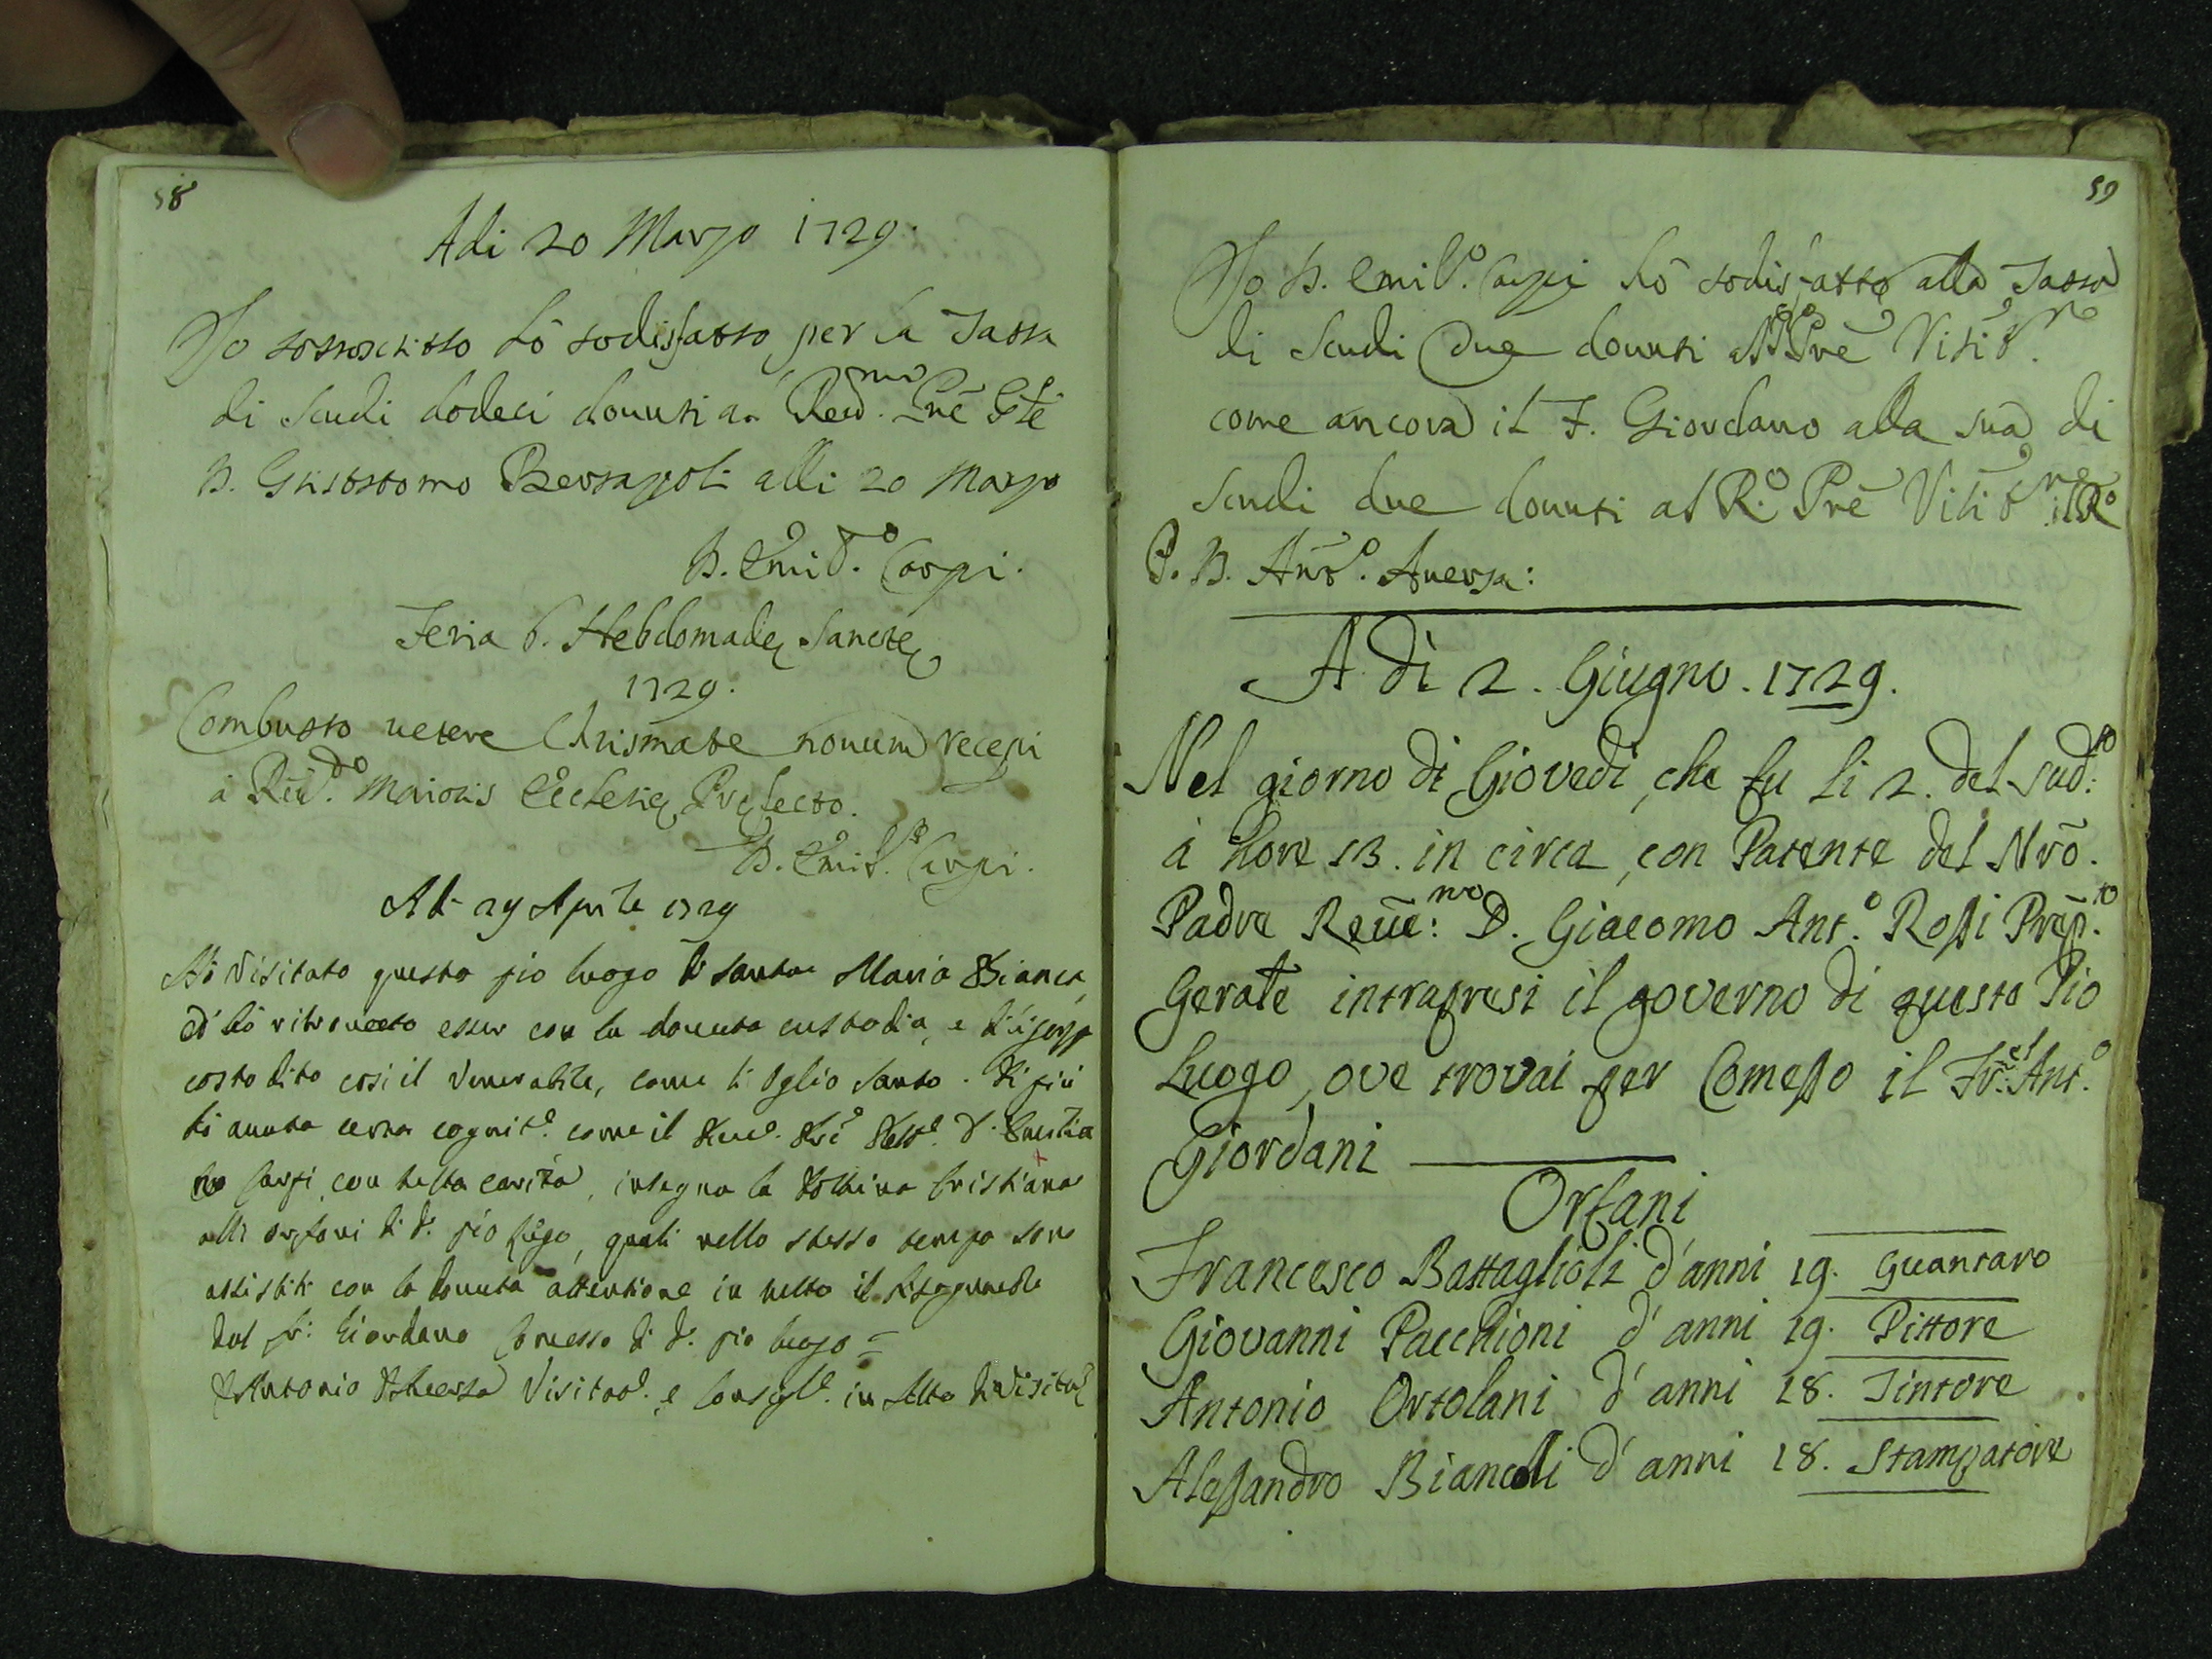 58
Adi 20 Marzo 1729.
Io sottoscritto hò sodisfatto per la Tassa
di Scudi dodeci douuti al Reud.mo Prē Gle
D. Grisostomo Bertazzoli alli 20 Marzo
D. Emil.o Carpi.
Feria 6. Hebdomadę Sanctę
1729.
Combusto uetere Chrismate nouum recepi
à Reūd.do Maioris Ecclesię Pręfecto.
D. Emil.o Carpi.
A di 29 Aprile 1729
Hò Visitato questo pio luogo di Santa Maria Bianca,
ed hò ritrouato esser con la douuta custodia, e
costodito cosi il Venerabile, come li Oglio Santo. Di più
hò auuta certa cognit.e come il D. Emilia
no Carpi, con tutta carità, insegna la dottrina cristiana
alli orfani di d.o pio luogo, quali nello stesso tempo sono
assistiti con la douuta attentione in tutto il bisogneuole
dal fr: Giordano Comesso di d.o pio luogo =
D. Antonio Auersa Visitat.e, e Consigl.e in Atto di Visita
59
Io D. Emil.o Carpi hò sodisfatto alla Tassa
di Scudi Due douuti al R.o Prē Visit.re
come ancora il F. Giordano alla sua di
Scudi due douuti al R.o Prē Visit.re il R.o
P. D. Ant.o Auersa:
A dì 2. Giugno. 1729.
Nel giorno di Giovedì, che fu li 2. del Sud:to
à hore 13. in circa, con Patente del Nrō.
Padre Reūe:mo D. Giacomo Ant.o Rossi Prep.to
Gerāle intrapresi il governo di questo Pio
Luogo, ove trovai per Comesso il Fr:el Ant.o
Giordani
Orfani
Francesco Battaglioli d'anni 19. Guantaro
Giovanni Pacchioni d'anni 19. Pittore
Antonio Ortolani d'anni 18. Tintore
Alessandro Biancoli d'anni 18. Stampatore